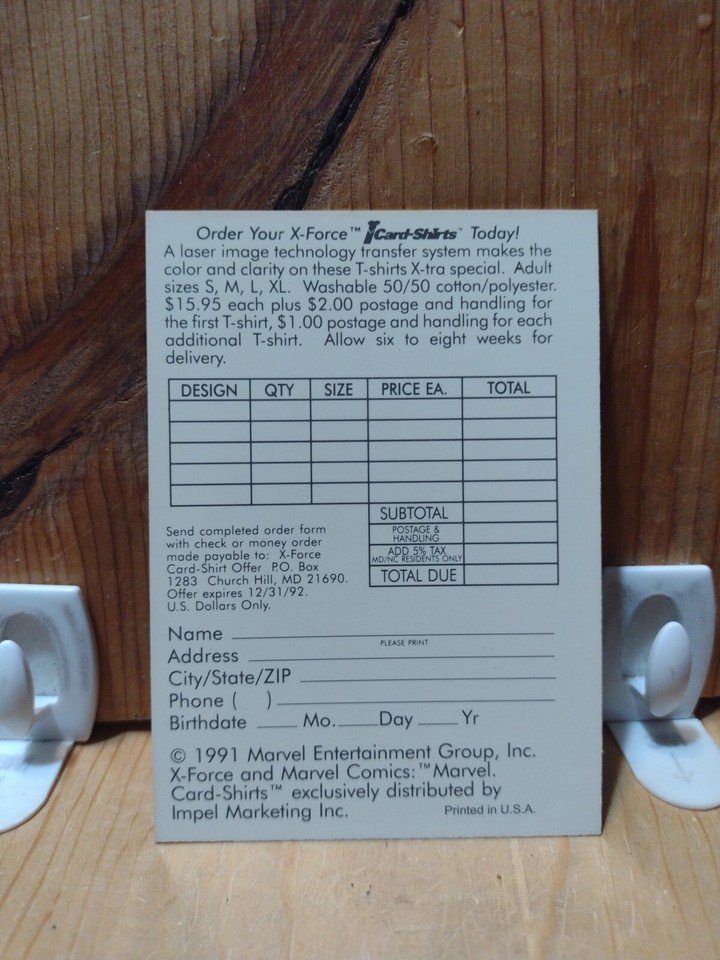 Order Your X-Force™ Card-Shirts™ Today!
A laser image technology transfer system makes the
color and clarity on these T-shirts X-tra special. Adult
sizes S, M, L, XL. Washable 50/50 cotton/polyester.
$15.95 each plus $2.00 postage and handling for
the first T-shirt, $1.00 postage and handling for each
additional T-shirt. Allow six to eight weeks for
delivery.
DESIGN QTY SIZE PRICE EA. TOTAL
SUBTOTAL
POSTAGE &
HANDLING
ADD 5% TAX
MD/NC RESIDENTS ONLY
TOTAL DUE
Send completed order form
with check or money order
made payable to: X-Force
Card-Shirt Offer P.O. Box
1283 Church Hill, MD 21690.
Offer expires 12/31/92.
U.S. Dollars Only.
Name
PLEASE PRINT
Address
City/State/ZIP
Phone ( )
Birthdate Mo. Day Yr
© 1991 Marvel Entertainment Group, Inc.
X-Force and Marvel Comics:™ Marvel.
Card-Shirts™ exclusively distributed by
Impel Marketing Inc. Printed in U.S.A.